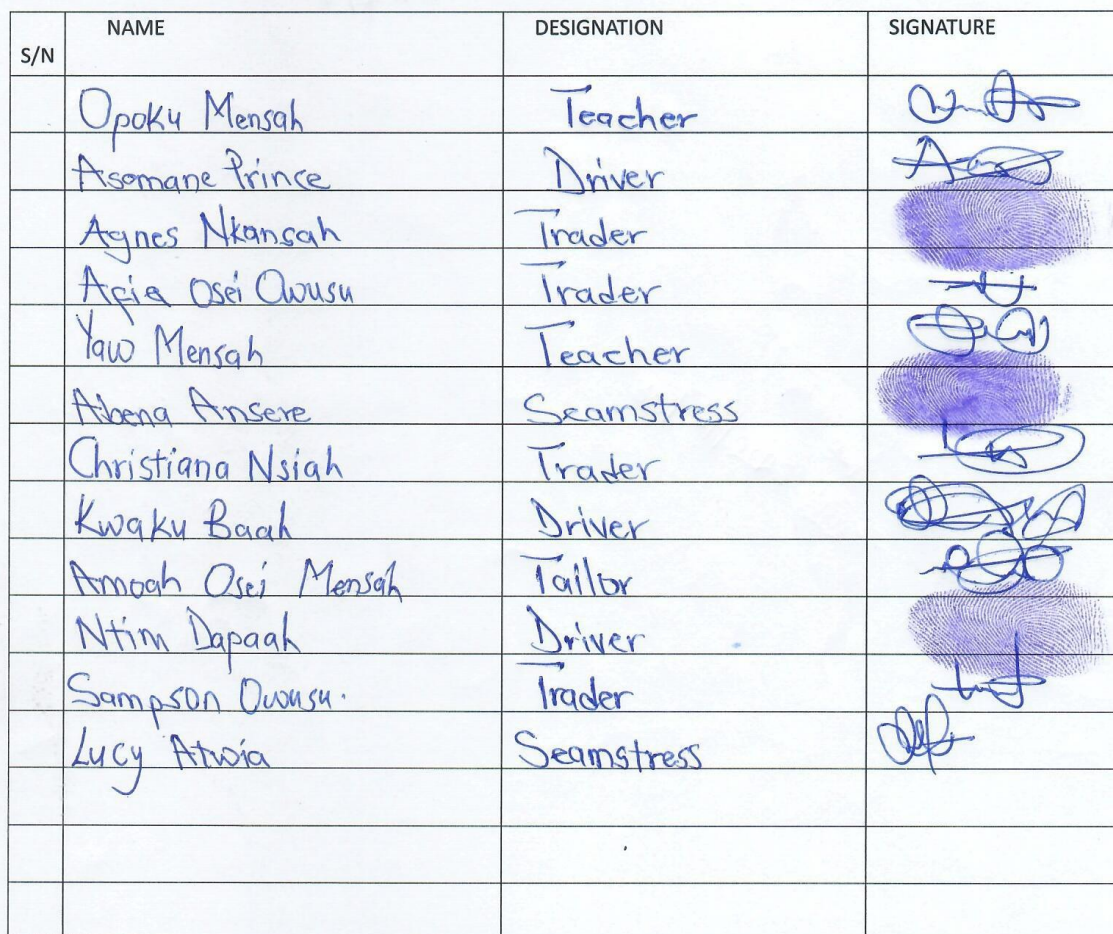 S/N NAME DESIGNATION SIGNATURE
Opoku Mensah Teacher
Asomane Prince Driver
Agnes Nkansah Trader
Afia Osei Owusu Trader
Yaw Mensah Teacher
Abena Ansere Seamstress
Christiana Nsiah Trader
Kwaku Baah Driver
Amoah Osei Mensah Tailor
Ntim Dapaah Driver
Sampson Owusu. Trader
Lucy Atwia Seamstress